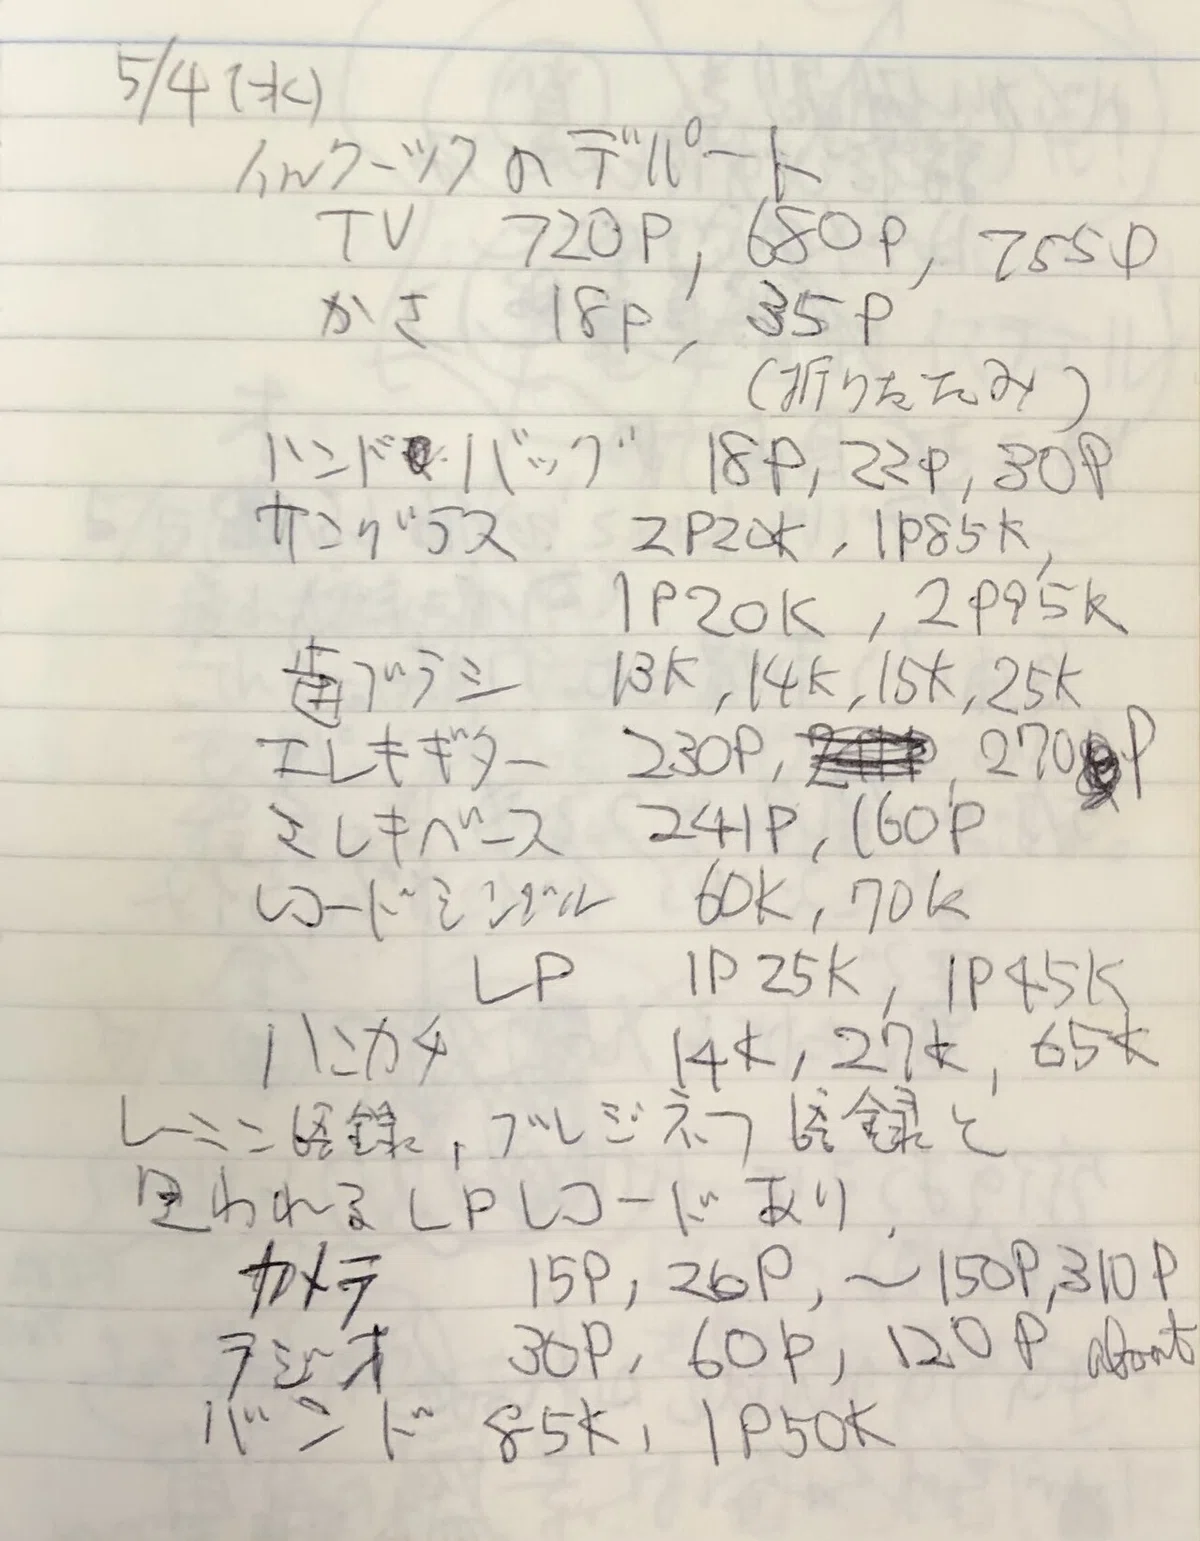 5/4(水)
イルクーツクのデパート
TV 720P, 680P, 755P
かさ 18P, 35P
(折りたたみ)
ハンドバッグ 18P, 22P, 30P
サングラス 2P20K, 1P85K,
1P20K, 2P95K
歯ブラシ 13K, 14K, 15K, 25K
エレキギター 230P, 270P
エレキベース 241P, 160P
レコードシングル 60K, 70K
LP 1P25K, 1P45K
ハンカチ 14K, 27K, 65K
レーニン語録, ブレジネフ語録と
思われるLPレコードあり,
カメラ 15P, 26P, 〜150P, 310P
ラジオ 30P, 60P, 120P about
バンド 85K, 1P50K